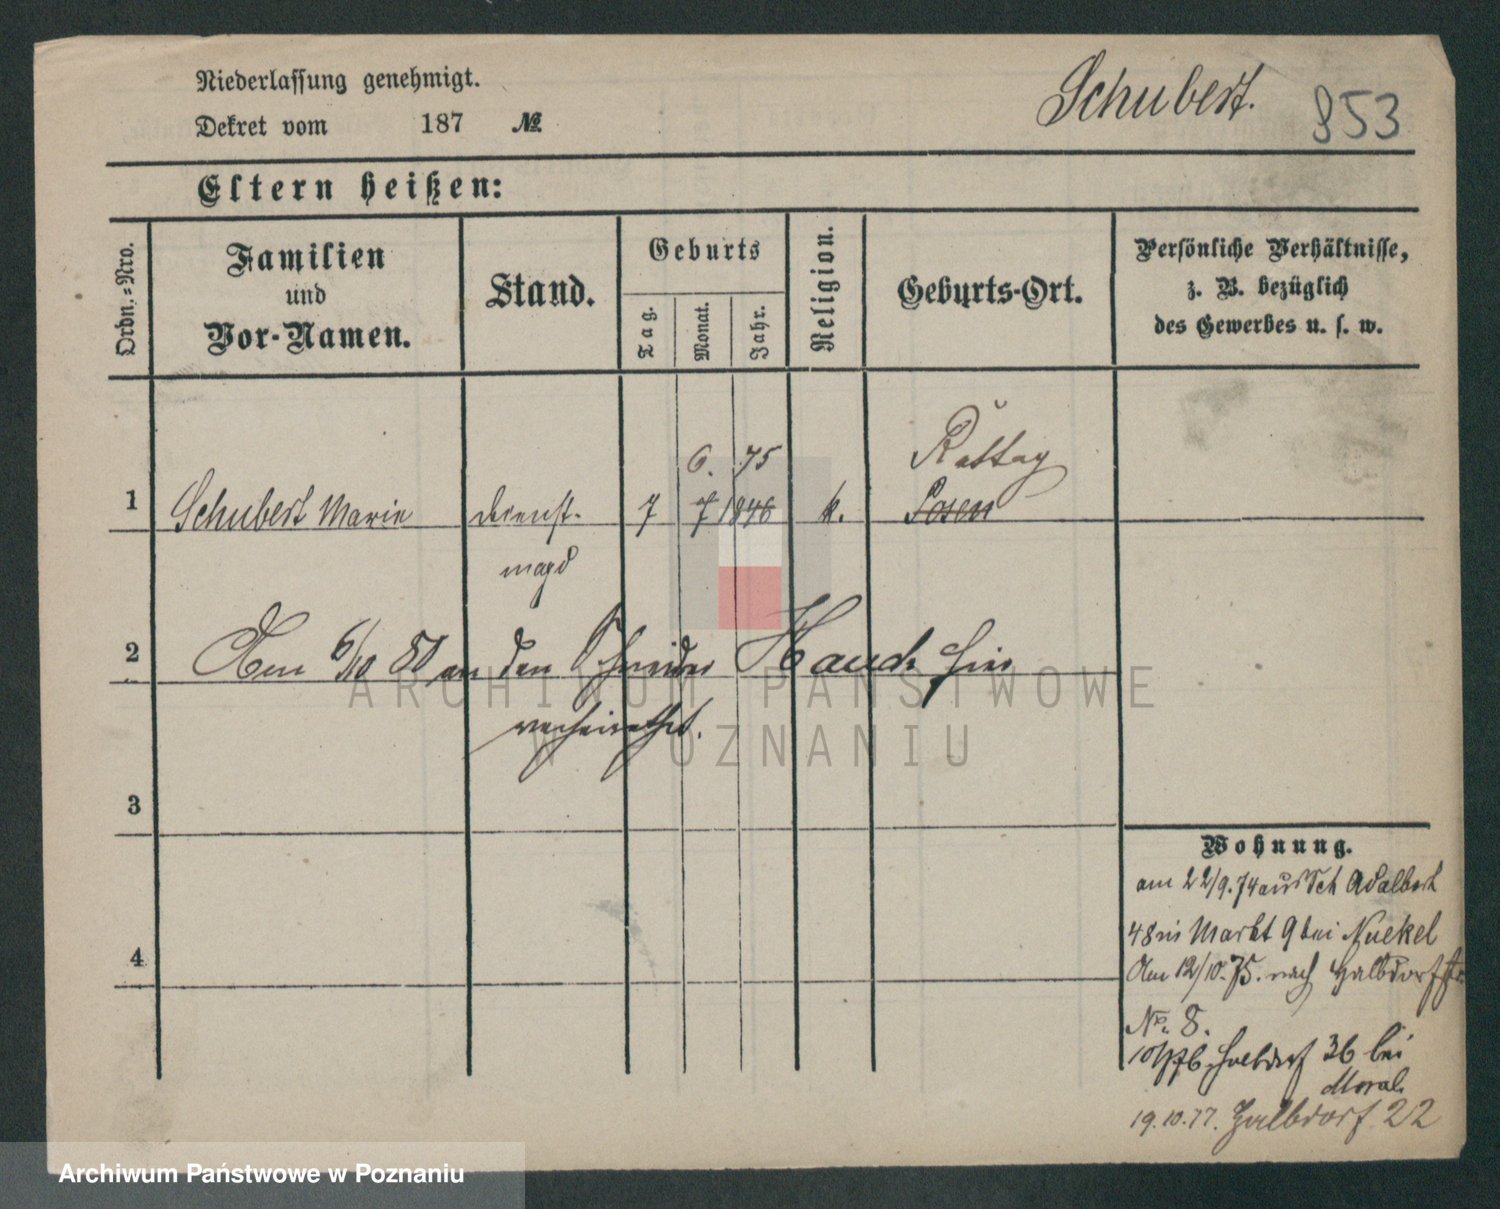 Niederlassung genehmigt.
Schubert.
853
Dekret vom 187 №
Eltern heißen:
Ordn.-Nro.
Familien
und
Vor-Namen.
Stand.
Geburts
Tag.
Monat.
Jahr.
Religion.
Geburts-Ort.
Persönliche Verhältnisse,
z. B. bezüglich
des Gewerbes u. s. w.
6. 75 Rattay
1 Schubert Marie Dienst- 7 7 1846 k. Posen
magd
2 Am 6/10 80 an den Schneider Hauck hier
verheirathet.
3
4
Wohnung.
am 22/9.74 aus Sct Adalbert
48 in Markt 9 bei Nuekel
Am 12/10.75. nach Halbdorfstr.
No. 8.
Halbdorf 36 bei
Moral.
19.10.77. Halbdorf 22
ARCHIWUM PAŃSTWOWE
W POZNANIU
Archiwum Państwowe w Poznaniu